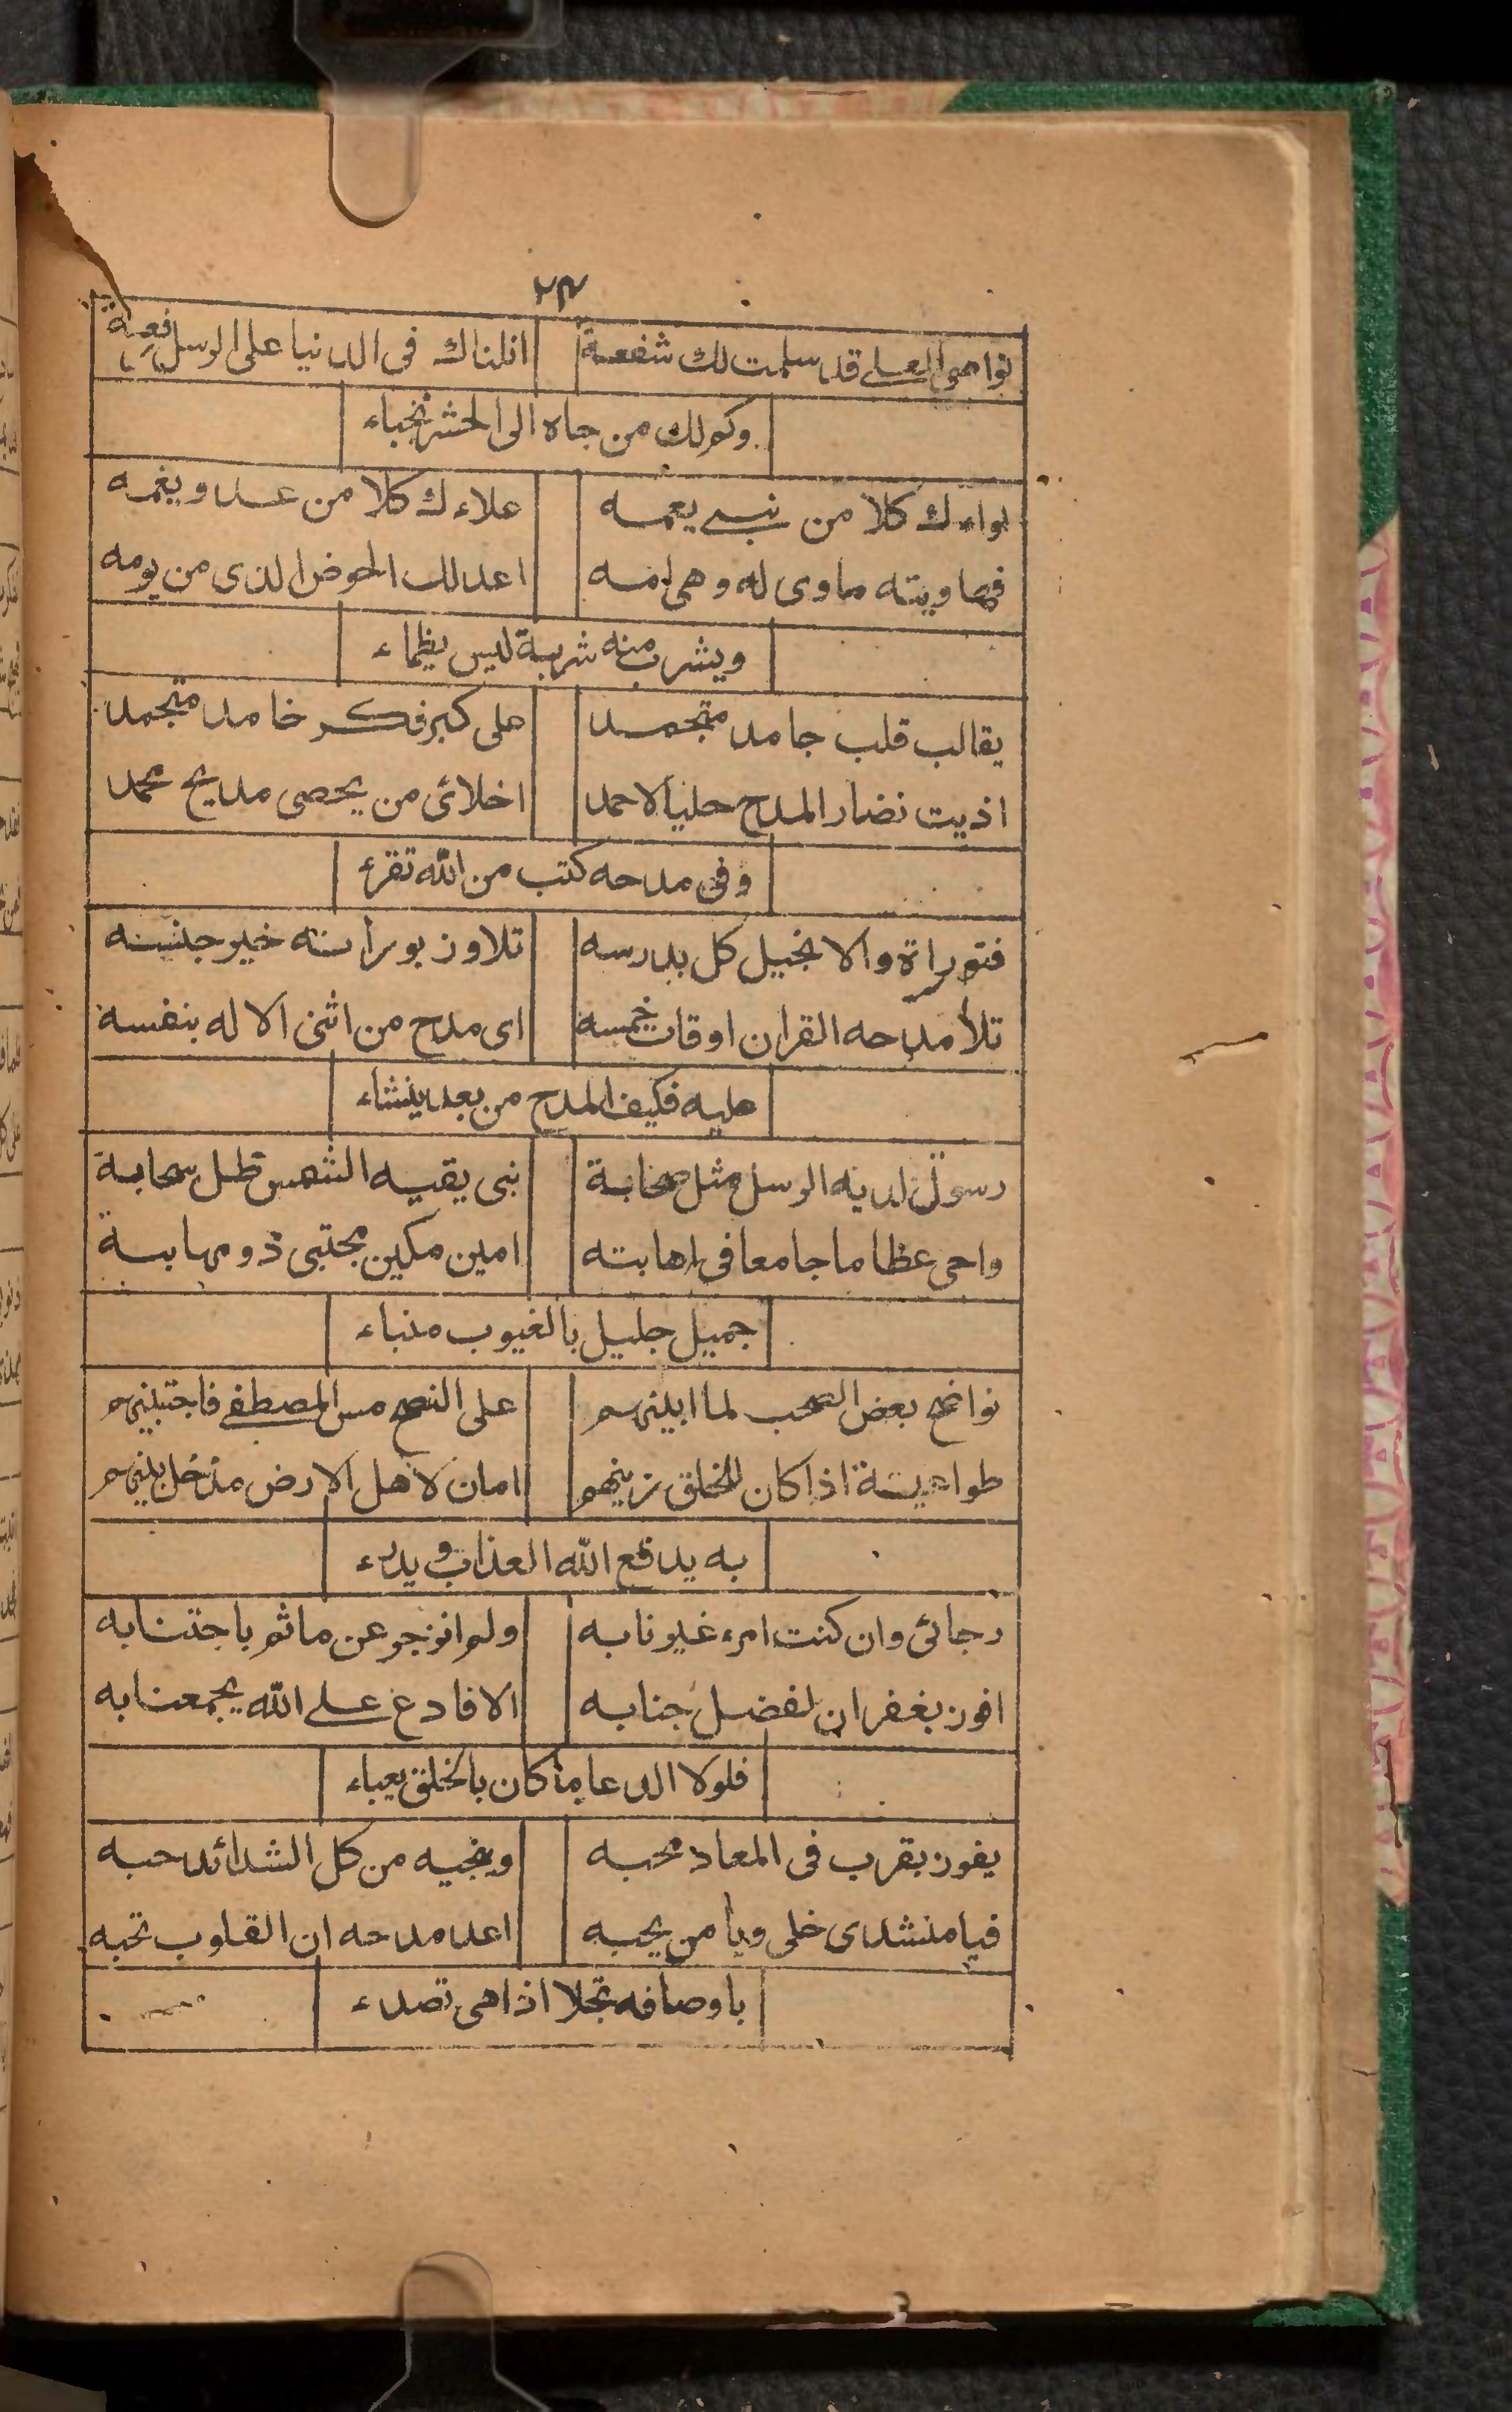 ٢٣
نواصى العلى قد سلمت لك شفعة انلناك فى الدنيا على الرسل رفعة
وكم لك من جاه الى الحشر يخباء
لواءك كلا من نبى يعمه علاءك كلا من عدو يغمه
فهاويته ماوى له وهى امه اعد لك الحوض الذى من يومه
ويشرب منه شربة ليس يظماء
يقالب قلب جامد متجمد على كير فكر خامد متجمد
اذيت نضار المدح حليا لاحمد اخلائى من يحصى مديح محمد
وفى مدحه كتب من الله تقرء
فتوراة والانجيل كل بدرسه تلاوز بوراته خير جنسه
تلا مدحه القران اوقات خمسه اى مدح من اثنى الاله بنفسه
عليه فكيف المدح من بعد ينشاء
رسول لديه الرسل مثل صحابة نبى يقيه الشمس ظل سحابة
واحى عظاما جامعا فى اهابته امين مكين مجتبى ذو مهابة
جميل جليل بالغيوب منباء
نواضح بعض الصحب لما ابلينهم على النصح مس المصطفى فاجتبلينهم
طواعية اذا كان للخلق زينهم امان لاهل الارض مذ حل بينهم
به يدفع الله العذاب ويدرء
رجائى وان كنت امرء غير نابه ولم انزجر عن ماثم باجتنابه
افوز بغفران لفضل جنابه الا فادع على الله يجمعنا به
فلولا الدعا ما كان بالخلق يعباء
يفوز بقرب فى المعاد محبه وينجيه من كل الشدائد حبه
فيا منشدى خلى ويا من يحبه اعد مدحه ان القلوب تحبه
باوصافه تجلا اذا هى تصدء